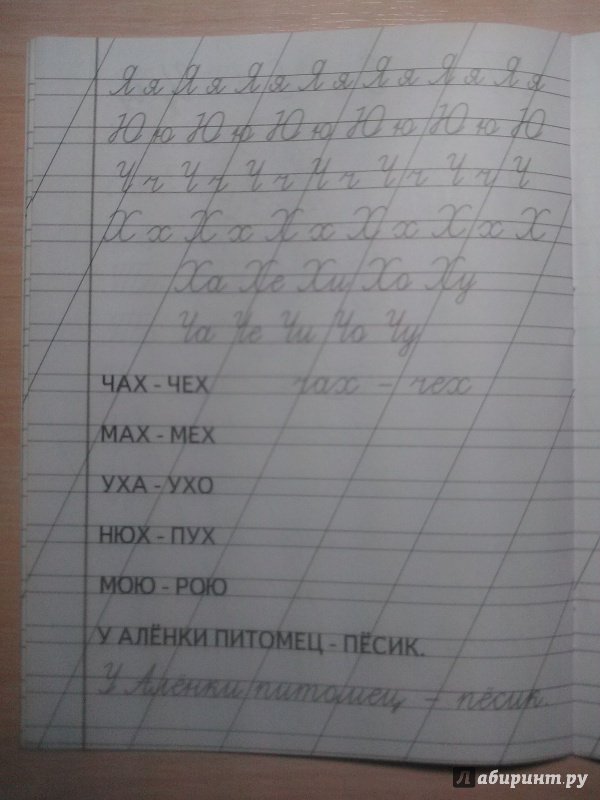 Я я Я я Я я Я я Я я Я я Я я
Ю ю Ю ю Ю ю Ю ю Ю ю Ю
Ч ч Ч ч Ч ч Ч ч Ч ч Ч ч Ч
Х х Х х Х х Х х Х х Х
Ха Хе Хи Хо Ху
Ча Че Чи Чо Чу
ЧАХ - ЧЕХ чах - чех
МАХ - МЕХ
УХА - УХО
НЮХ - ПУХ
МОЮ - РОЮ
У АЛЁНКИ ПИТОМЕЦ - ПЁСИК.
У Алёнки питомец - пёсик.
Лабиринт.ру